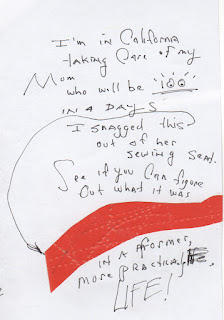 I'm in California
taking care of my
Mom
who will be 100
IN 2 DAYS
I snagged this
out of her
sewing seat.
See if you can figure
out what it was
IN A FORMER,
MORE PRACTICAL
LIFE!